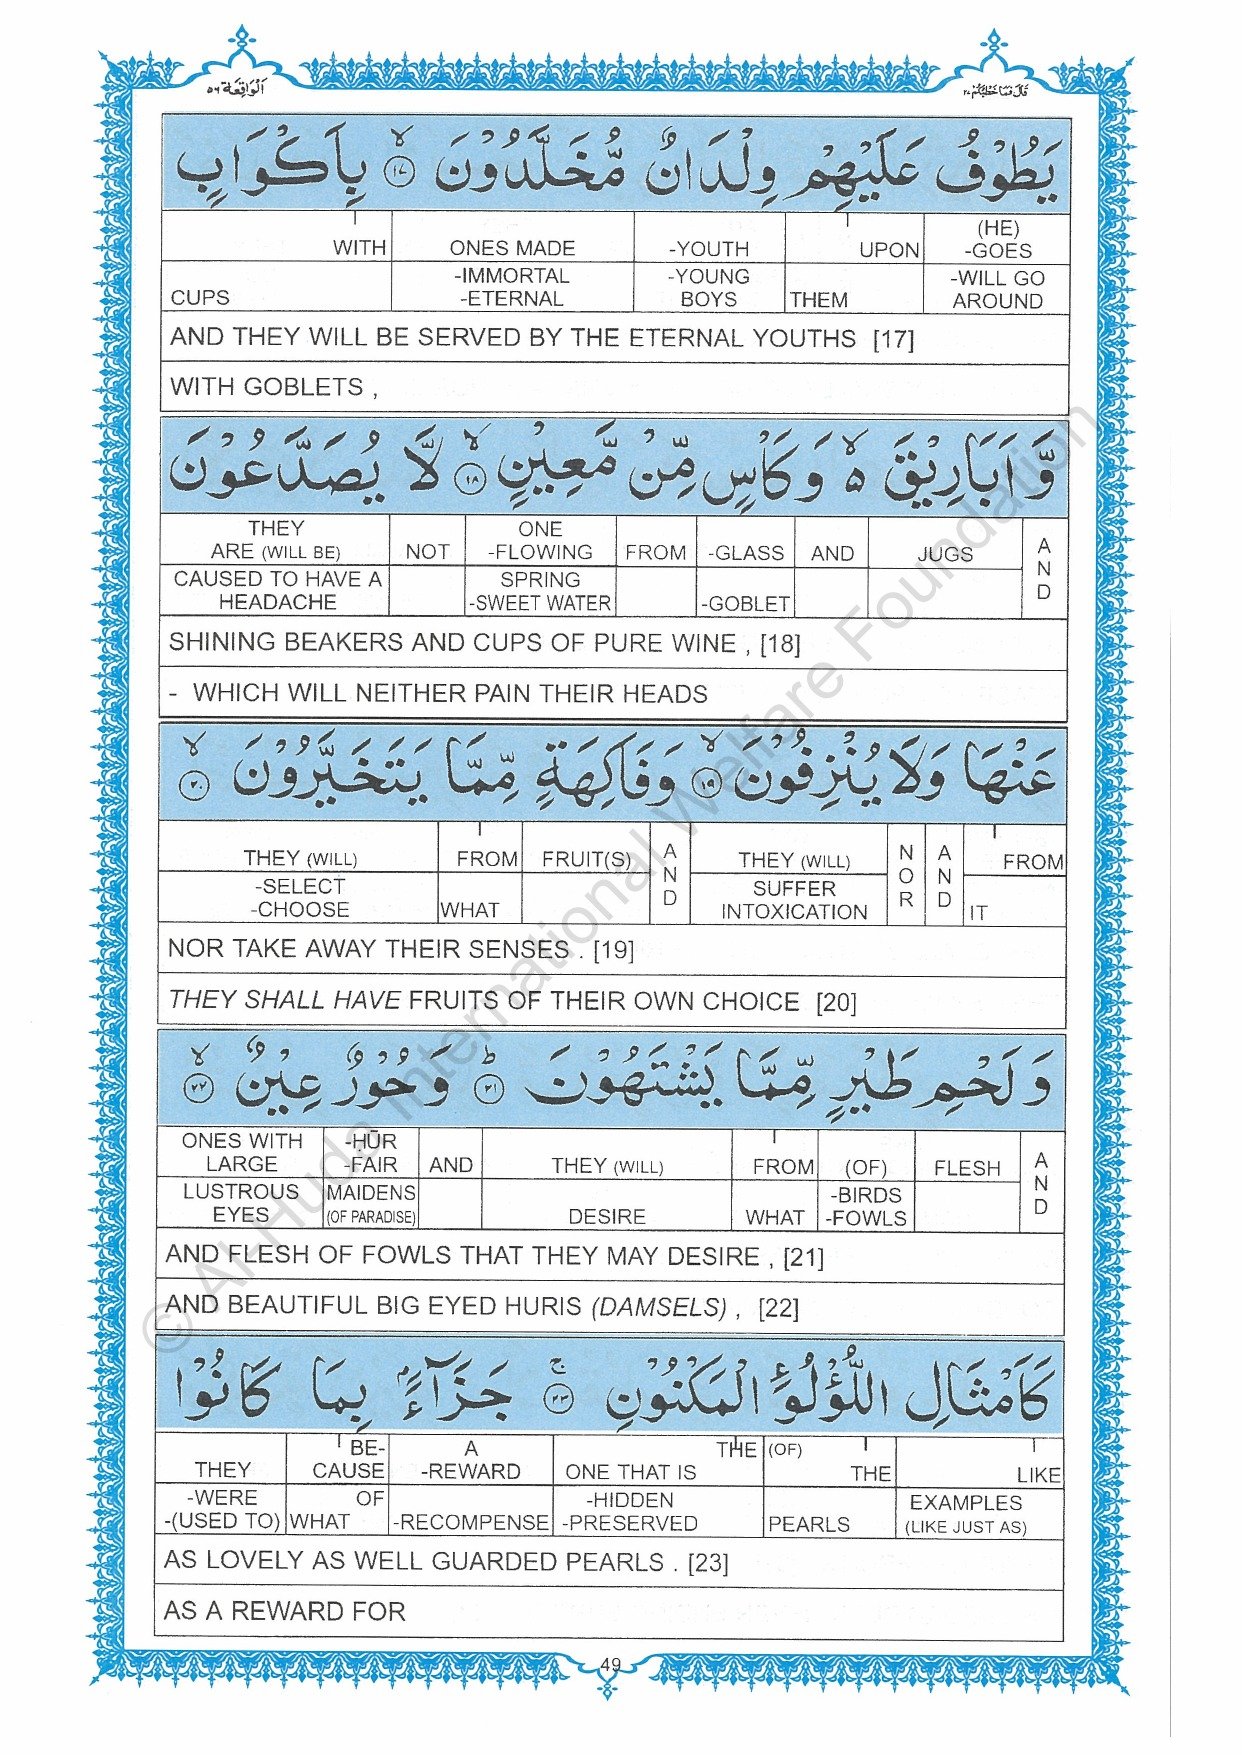 الْوَاقِعَة ٥٦
قَالَ فَمَا خَطْبُكُمْ ٢٧
يَطُوْفُ عَلَيْهِمْ وِلْدَانٌ مُّخَلَّدُوْنَ ﴿١٧﴾ۙ بِاَكْوَابٍ
WITH ONES MADE -YOUTH UPON (HE) -GOES
CUPS -IMMORTAL -ETERNAL -YOUNG BOYS THEM -WILL GO AROUND
AND THEY WILL BE SERVED BY THE ETERNAL YOUTHS [17]
WITH GOBLETS ,
وَّاَبَارِيْقَ ۙ٥ وَكَاْسٍ مِّنْ مَّعِيْنٍ ﴿١٨﴾ۙ لَّا يُصَدَّعُوْنَ
THEY ARE (WILL BE) NOT ONE -FLOWING FROM -GLASS AND JUGS AND
CAUSED TO HAVE A HEADACHE SPRING -SWEET WATER -GOBLET
SHINING BEAKERS AND CUPS OF PURE WINE , [18]
- WHICH WILL NEITHER PAIN THEIR HEADS
عَنْهَا وَلَا يُنْزِفُوْنَ ﴿١٩﴾ۙ وَفَاكِهَةٍ مِّمَّا يَتَخَيَّرُوْنَ ﴿٢٠﴾ۙ
THEY (WILL) FROM FRUIT(S) AND THEY (WILL) NOR AND FROM
-SELECT -CHOOSE WHAT SUFFER INTOXICATION IT
NOR TAKE AWAY THEIR SENSES . [19]
THEY SHALL HAVE FRUITS OF THEIR OWN CHOICE [20]
وَلَحْمِ طَيْرٍ مِّمَّا يَشْتَهُوْنَ ﴿٢١﴾ؕ وَحُوْرٌ عِيْنٌ ﴿٢٢﴾ۙ
ONES WITH LARGE -HŪR -FAIR AND THEY (WILL) FROM (OF) FLESH AND
LUSTROUS EYES MAIDENS (OF PARADISE) DESIRE WHAT -BIRDS -FOWLS
AND FLESH OF FOWLS THAT THEY MAY DESIRE , [21]
AND BEAUTIFUL BIG EYED HURIS (DAMSELS) , [22]
كَاَمْثَالِ اللُّؤْلُؤِ الْمَكْنُوْنِ ﴿٢٣﴾ۚ جَزَآءًۢ بِمَا كَانُوْا
THEY BE- CAUSE A -REWARD THE ONE THAT IS (OF) THE LIKE
-WERE -(USED TO) OF WHAT -RECOMPENSE -HIDDEN -PRESERVED PEARLS EXAMPLES (LIKE JUST AS)
AS LOVELY AS WELL GUARDED PEARLS . [23]
AS A REWARD FOR
49
© Al-Huda International Welfare Foundation